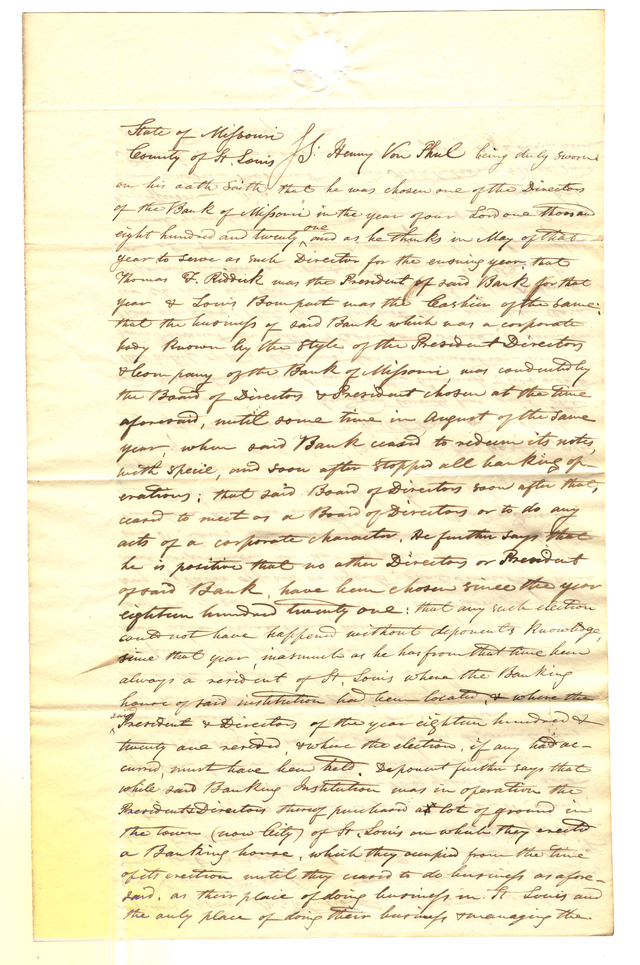 State of Missouri
County of St. Louis } SS: Henry Von Phul being duly sworn
on his oath saith that he was chosen one of the Directors
of the Bank of Missouri in the year of our Lord one thousand
eight hundred and twenty one and as he thinks in May of that
year to serve as such Director for the ensuing year; that
Thomas F. Riddick was the President of said Bank for that
year & Louis Bompart was the Cashier of the same:
that the business of said Bank which was a corporate
body known by the Style of the President Directors
& Company of the Bank of Missouri, was conducted by
the Board of Directors & President chosen at the time
aforesaid, until some time in August of the same
year, when said Bank ceased to redeem its notes,
with specie, and soon after stopped all banking op-
erations; that said Board of Directors soon after that,
ceased to meet as a Board of Directors or to do any
acts of a corporate character. He further says that
he is positive that no other Directors or President
of said Bank, have been chosen since the year
eighteen hundred twenty one: that any such election
could not have happened without deponents knowledge,
since that year, inasmuch as he has from that time been
always a resident of St. Louis where the Banking
house of said institution had been located, & where the
said President & Directors of the year eighteen hundred &
twenty one resided, & where the election, if any had oc-
cured, must have been held. Deponent further says that
while said Banking Institution was in operation the
President & Directors thereof purchased a lot of ground in
the town (now City) of St. Louis on which they erected
a Banking house, which they occupied from the time
of its erection until they ceased to do business as afore-
said, as their place of doing business in St Louis and
the only place of doing their business & managing the